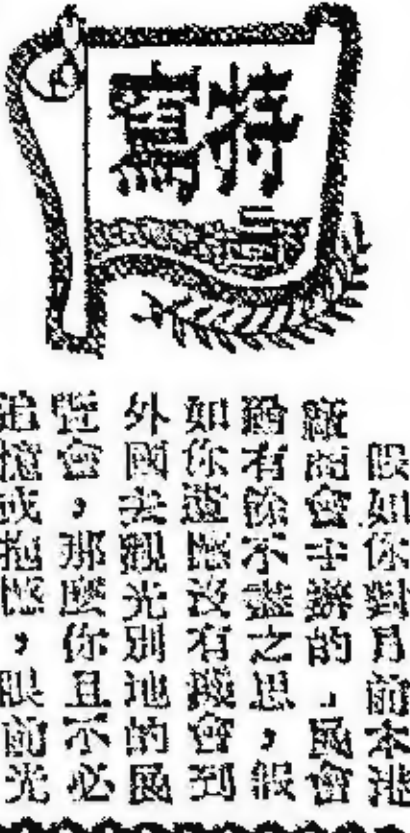 特寫
假如你對月前本港
廠商會主辦的工展會
有餘不盡之思，假
如你遺憾沒有機會到
外國去觀光別地的展
覽會，那麼你且不必
追憶或抱憾，眼前光